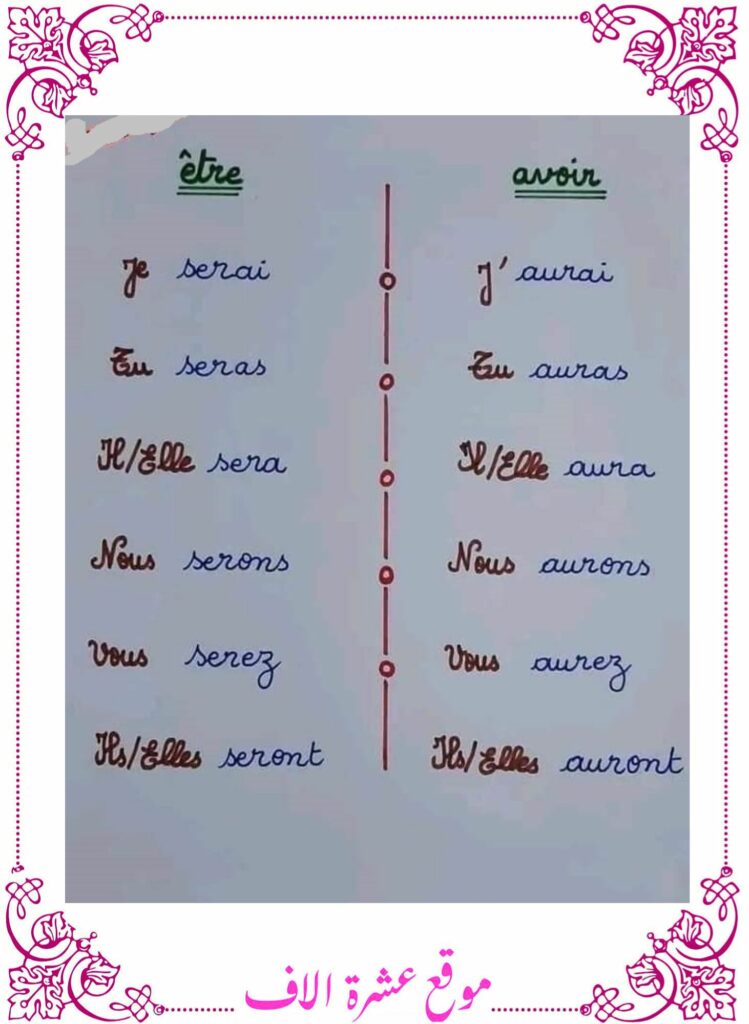 être
Je serai
Tu seras
Il/Elle sera
Nous serons
Vous serez
Ils/Elles seront
avoir
J' aurai
Tu auras
Il/Elle aura
Nous aurons
Vous aurez
Ils/Elles auront
موقع عشرة الاف